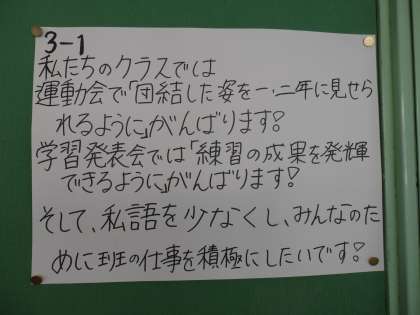 3-1
私たちのクラスでは
運動会で「団結した姿を一、二年に見せら
れるように」がんばります!
学習発表会では「練習の成果を発揮
できるように」がんばります!
そして、私語を少なくし、みんなのた
めに班の仕事を積極にしたいです!